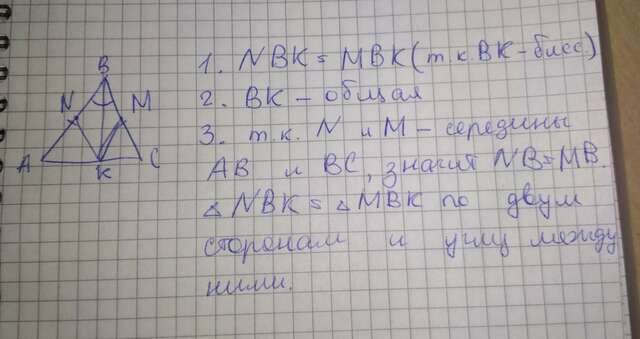 B
N
M
A
K
C
1. NBK = MBK (т.к. BK - бисс.)
2. BK - общая
3. т.к. N и M - середины
AB и BC, значит NB=MB.
△NBK = △MBK по двум
сторонам и углу между
ними.